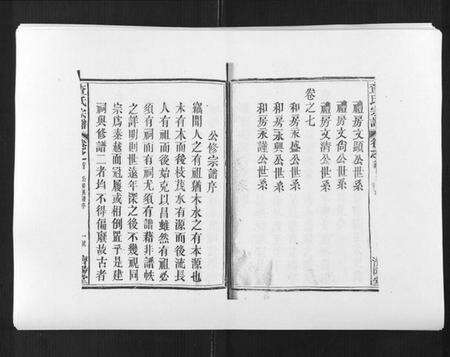 禮房文顯公世系
禮房文尚公世系
禮房文清公世系
卷之七
和房永盛公世系
和房永興公世系
和房永謹公世系
公修宗譜序
竊聞人之有祖猶木水之有本源也
木有本而後枝茂水有源而後流長
人有祖而後始克以昌雖然有祖必
須有祠而有祠尤須有譜藉非譜帙
之詳明則世遠年深之後不幾視同
宗爲秦越而冠履或相倒置乎是建
祠與修譜二者均不得偏廢故古者
氏宗譜